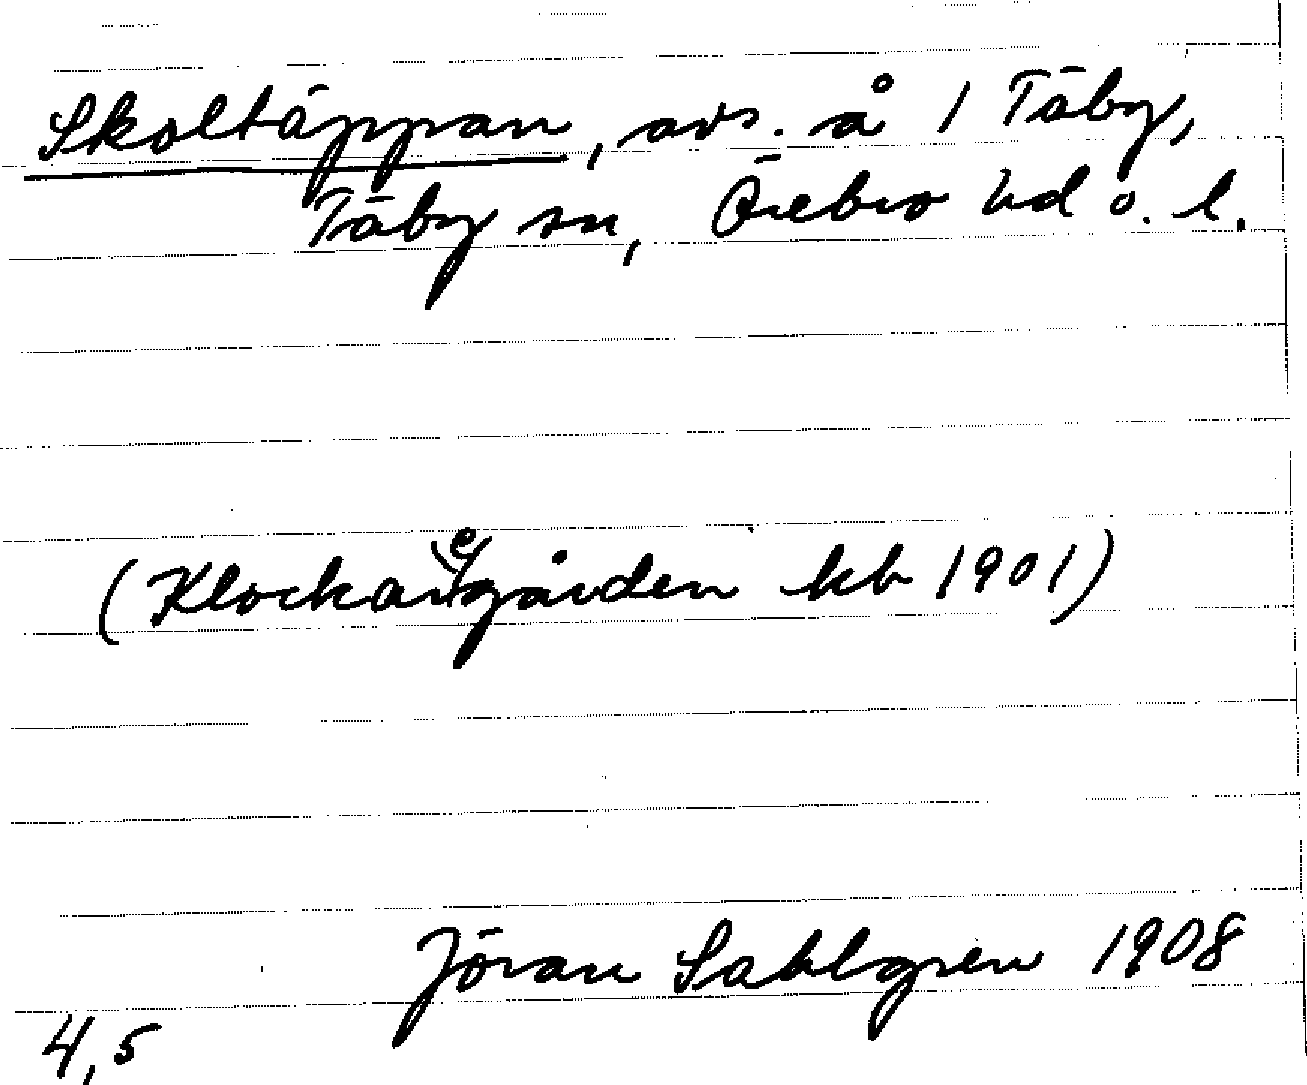 Skoltäppan, avs. å 1 Täby,
Täby sn, Örebro hd o. l.
(Klockar(e)gården kb 1901)
Jöran Sahlgren 1908
4,5